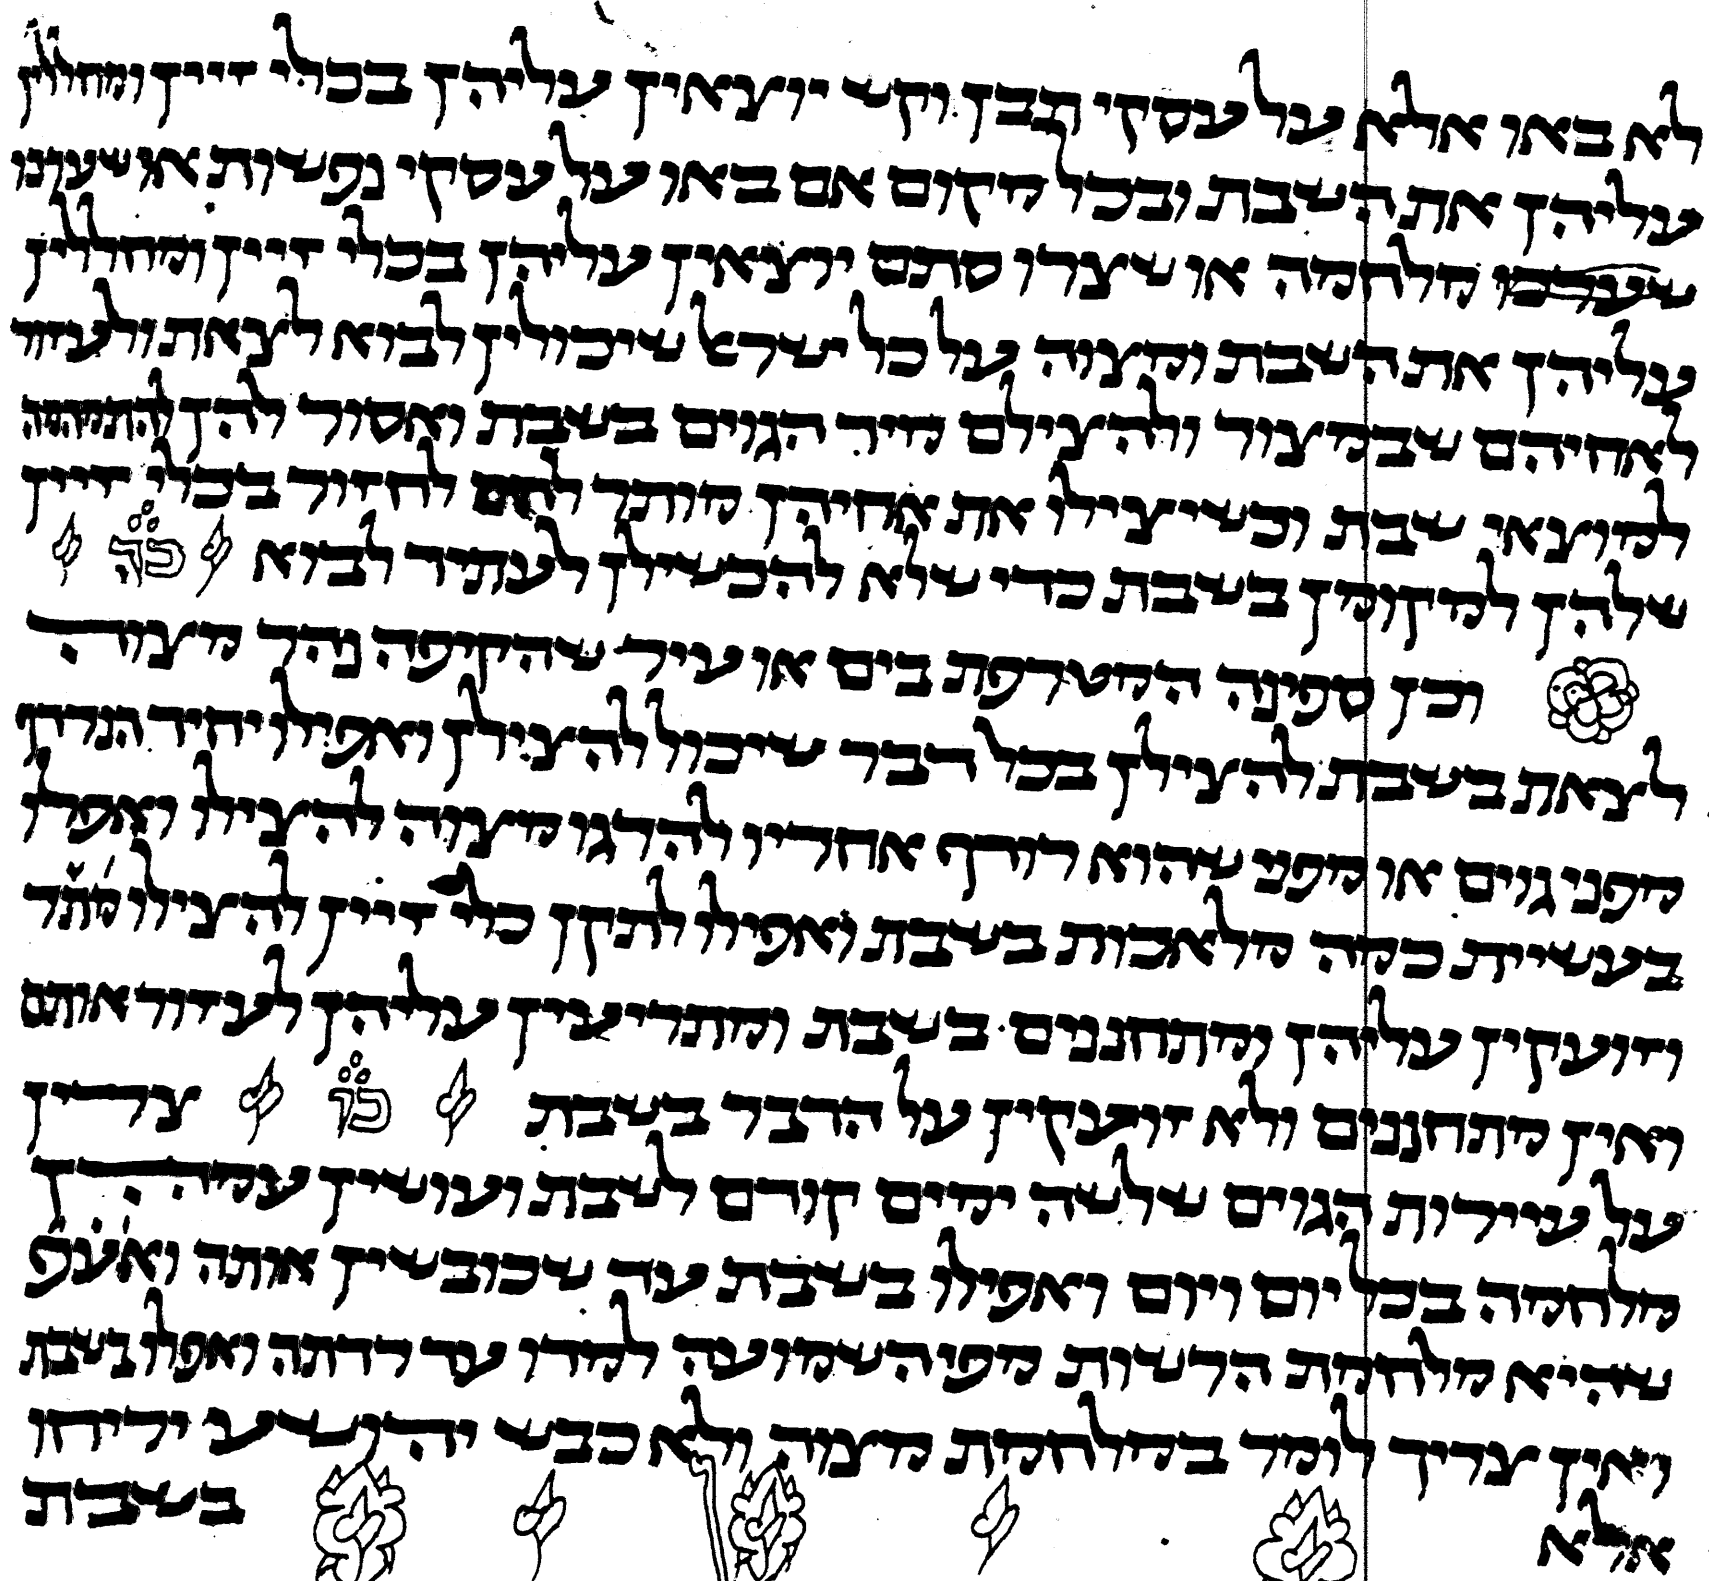 לא באו אלא על עסקי תבן וקש יוצאין עליהן בכלי זיין ומחללין
עליהן את השבת ובכל מקום אם באו על עסקי נפשות או שערכו
שערכו מלחמה או שצרו סתם יוצאין עליהן בכלי זיין ומחללין
עליהן את השבת ומצוה על כל ישראל שיכולין לבוא לצאת ולעזור
לאחיהם שבמצור ולהצילם מיד הגוים בשבת ואסור להן להתמהמה
למוצאי שבת וכשיצילו את אחיהן מותר להם לחזור בכלי זיין
שלהן למקומן בשבת כדי שלא להכשילן לעתיד לבוא כה
וכן ספינה המטרפת בים או עיר שהקיפה נהר מצוה
לצאת בשבת להצילן בכל דבר שיכול להצילן ואפילו יחיד הנרדף
מפני גוים או מפני שהוא רודף אחריו להרגו מצוה להצילו ואפלו
בעשיית כמה מלאכות בשבת ואפילו לתקן כלי זיין להצילו מתר
וזועקין עליהן ומתחננים בשבת ומתריעין עליהן לעזור אותם
ואין מתחננים ולא זועקין על הדבר בשבת כו צרין
על עיירות הגוים שלשה ימים קודם לשבת ועושין עמהן
מלחמה בכל יום ויום ואפילו בשבת עד שכובשין אותה ואעפ
שהיא מלחמת הרשות מפי השמועה למדו עד רדתה ואפלו בשבת
ואין צריך לומר במלחמת מצוה ולא כבש יהושע יריחו
אלא בשבת